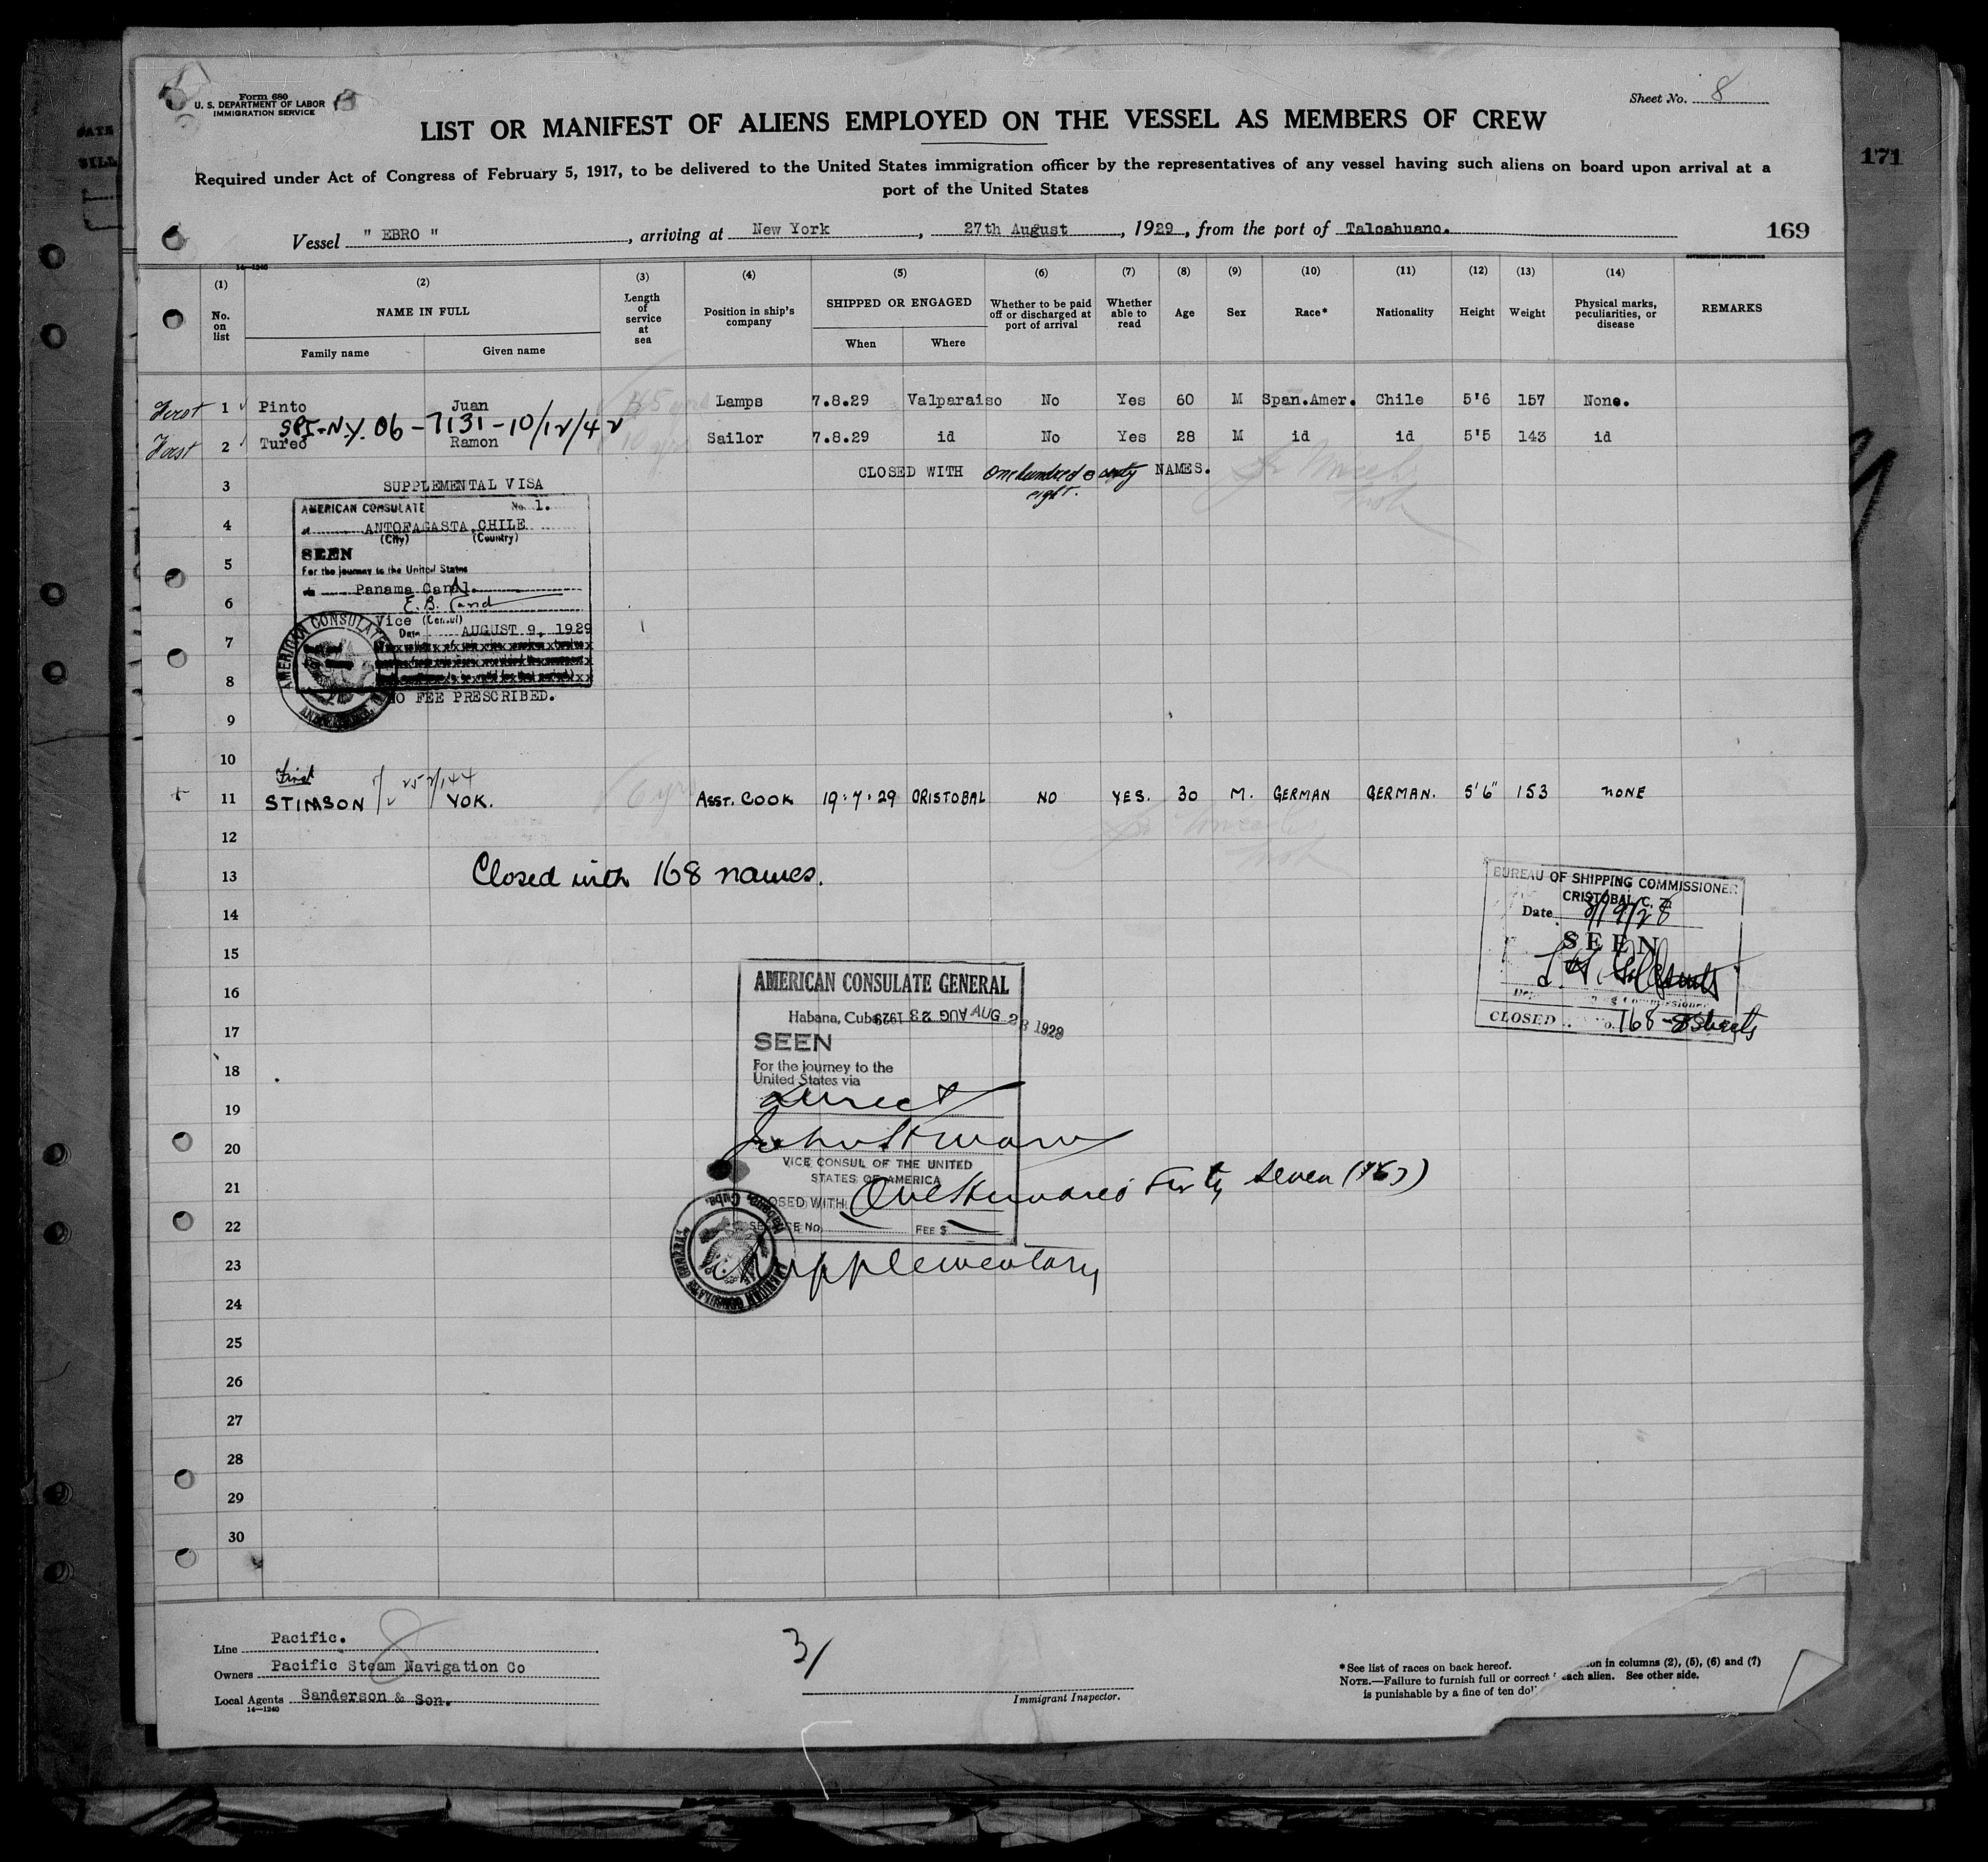 Form 680
U. S. DEPARTMENT OF LABOR
IMMIGRATION SERVICE
Sheet No. 8
LIST OR MANIFEST OF ALIENS EMPLOYED ON THE VESSEL AS MEMBERS OF CREW
Required under Act of Congress of February 5, 1917, to be delivered to the United States immigration officer by the representatives of any vessel having such aliens on board upon arrival at a
port of the United States
171
Vessel " EBRO ", arriving at New York, 27th August, 1929, from the port of Talcahuano.
169
14—1240
(1) (2) (3) (4) (5) (6) (7) (8) (9) (10) (11) (12) (13) (14)
No. on list
NAME IN FULL
Family name
Given name
Length of service at sea
Position in ship's company
SHIPPED OR ENGAGED
When
Where
Whether to be paid off or discharged at port of arrival
Whether able to read
Age
Sex
Race*
Nationality
Height
Weight
Physical marks, peculiarities, or disease
REMARKS
First 1 Pinto Juan Lamps 7.8.29 Valparaiso No Yes 60 M Span.Amer. Chile 5'6 157 None.
-N.Y. 06-7131-10/12/42
First 2 Tureo Ramon 10 yrs Sailor 7.8.29 id No Yes 28 M id id 5'5 143 id
CLOSED WITH One hundred NAMES.
eight.
3
SUPPLEMENTAL VISA
AMERICAN CONSULATE No. 1.
4
at ANTOFAGASTA, CHILE
(City) (Country)
SEEN
5
For the journey to the United States
Panama Canal.
6
E. B. Rand
Vice (Consul)
Date AUGUST 9, 1929
7
8
AMERICAN CONSULATE
NO FEE PRESCRIBED.
9
10
First
11 STIMSON YOK. 6 yrs ASST. COOK 19.7.29 CRISTOBAL NO YES. 30 M. GERMAN GERMAN. 5'6" 153 NONE
12
13 Closed with 168 names.
14
15
16
17
18
19
20
21
22
23
24
25
26
27
28
29
30
BUREAU OF SHIPPING COMMISSIONER
CRISTOBAL, C. Z.
Date
SEEN
CLOSED No. 168 - 8 Sheets
AMERICAN CONSULATE GENERAL
Habana, Cuba AUG 23 1929
AUG 23 1929
SEEN
For the journey to the
United States via
Direct
VICE CONSUL OF THE UNITED
STATES OF AMERICA
CLOSED WITH One Hundred Seven
FEE $
Supplementary
Line Pacific.
Owners Pacific Steam Navigation Co
Local Agents Sanderson & Son.
14—1240
8
3/
Immigrant Inspector.
*See list of races on back hereof.
NOTE.—Failure to furnish full or correct
on in columns (2), (5), (6) and (7)
each alien. See other side.
is punishable by a fine of ten